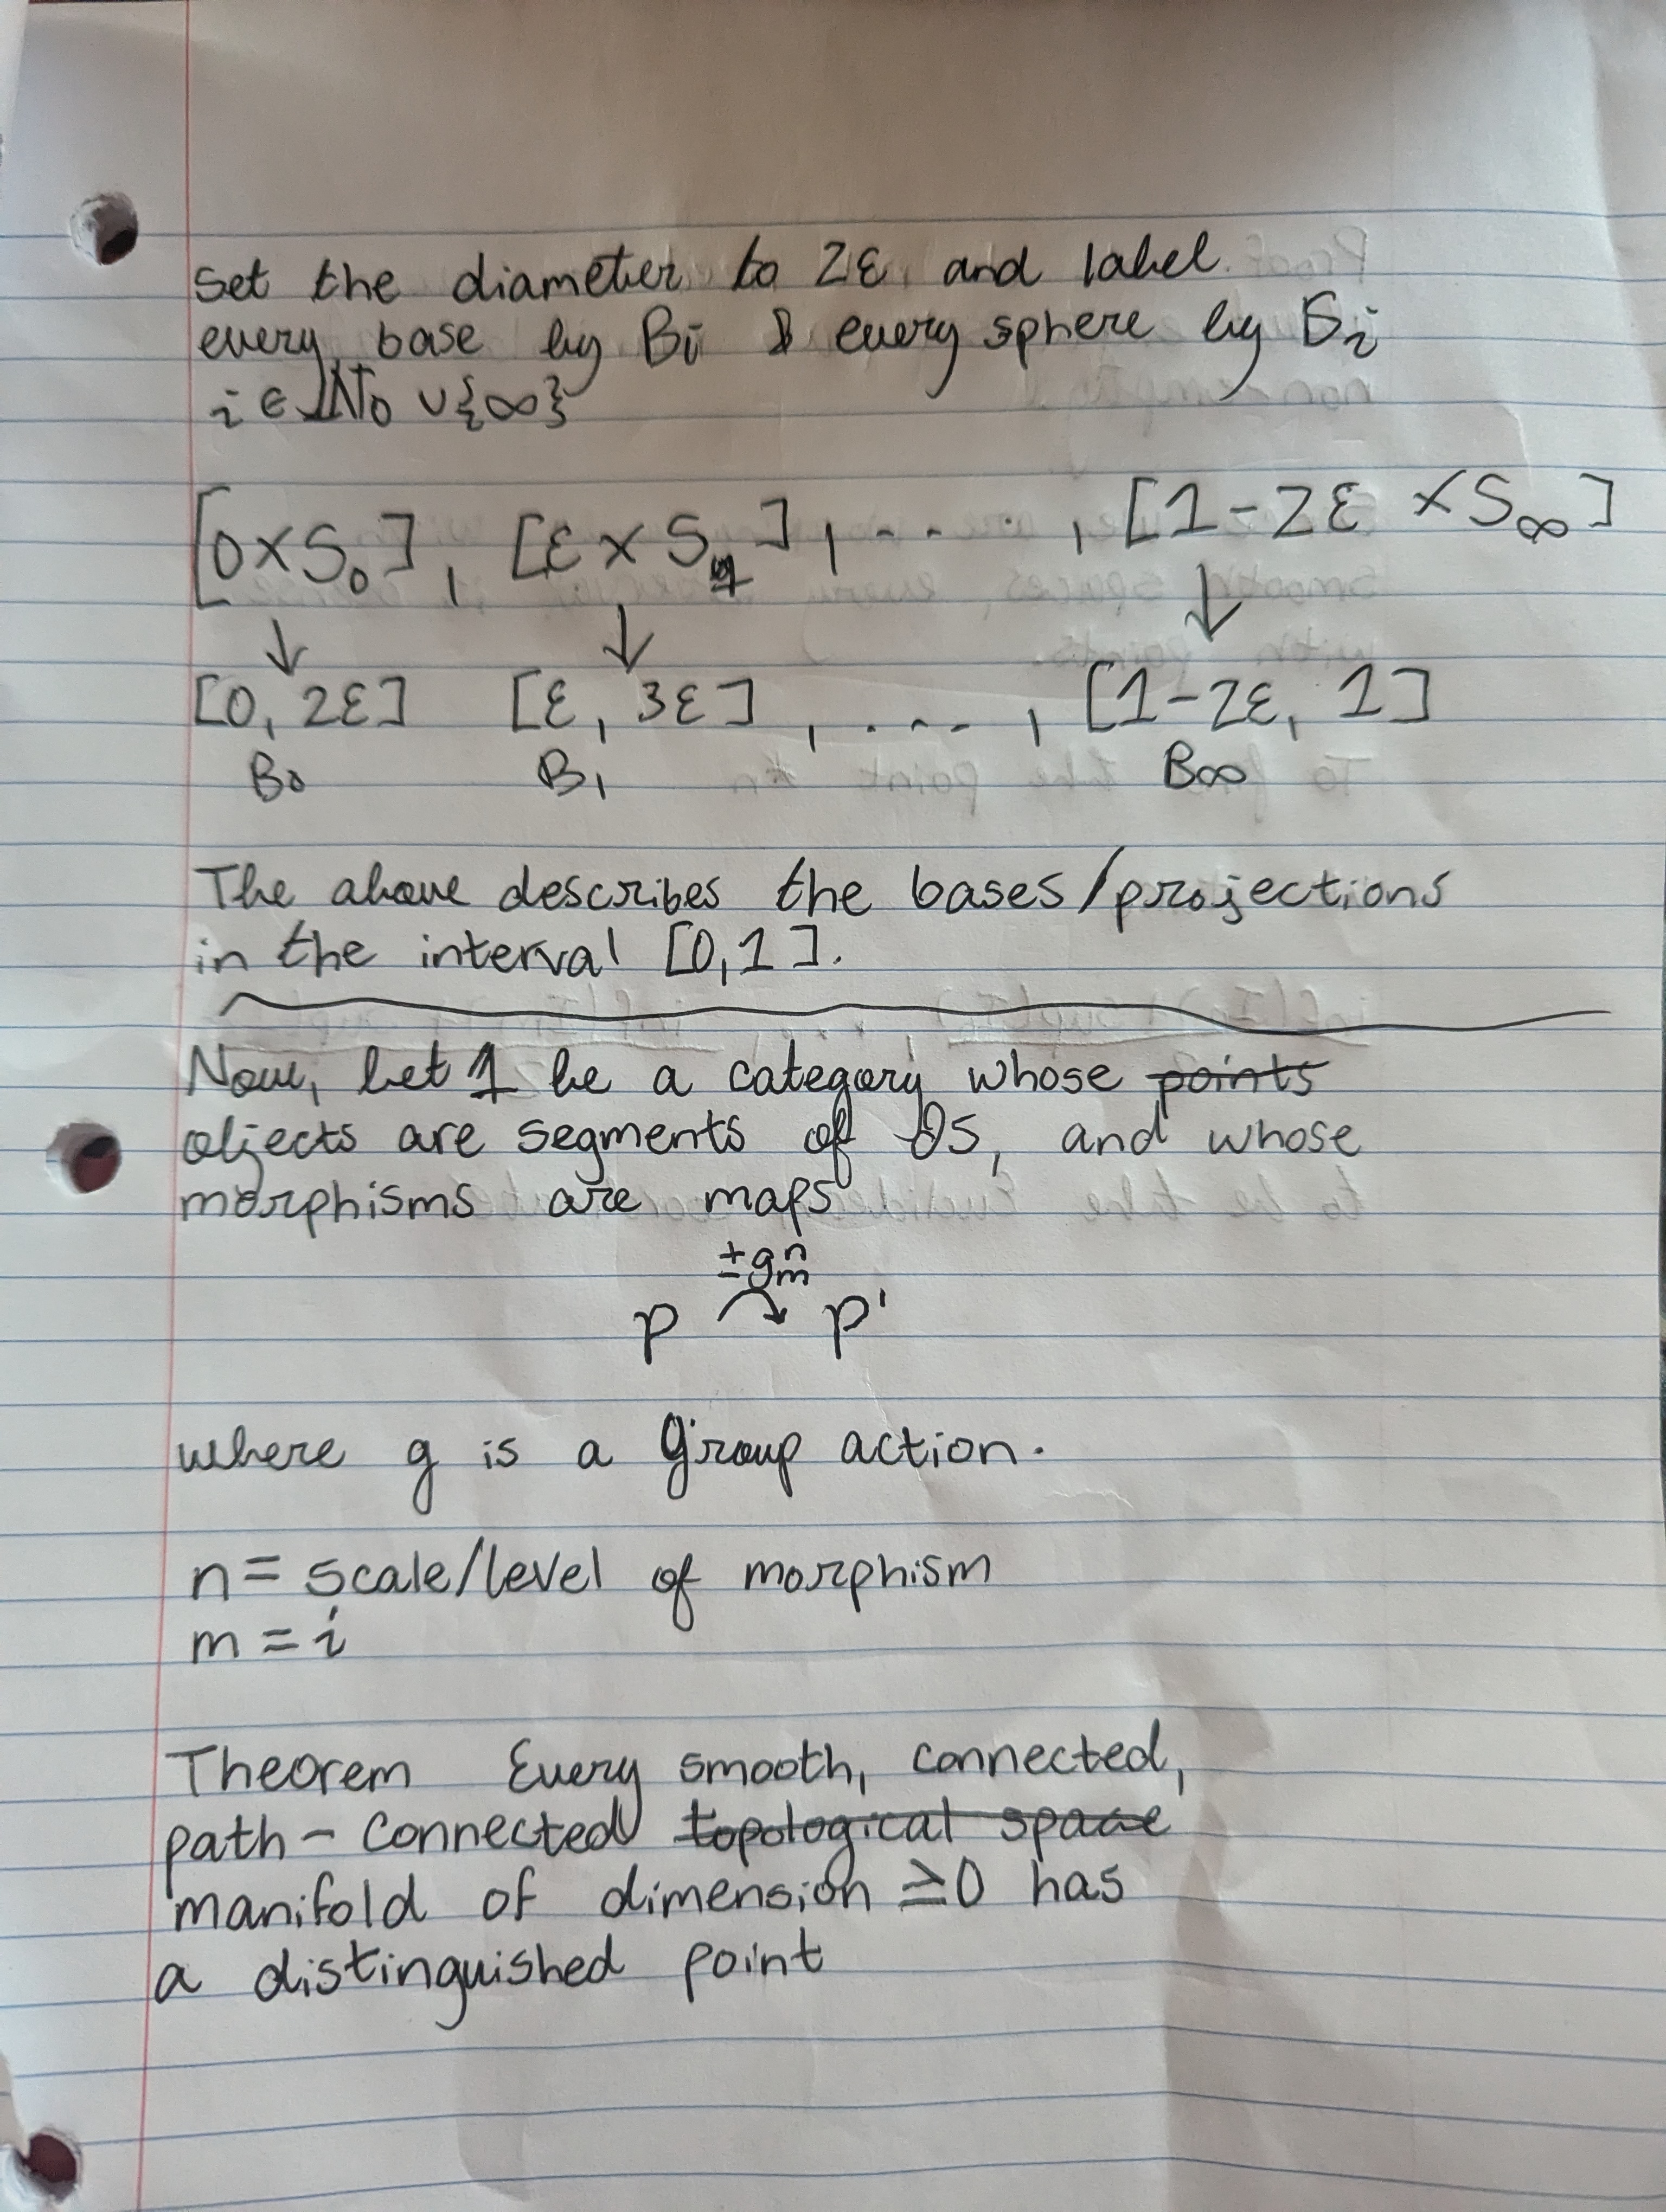 Set the diameter to 2ε and label
every base by Bi & every sphere by Si
i ∈ ℕ0 ∪{∞}
[0×S0], [ε×S1], ...., [1-2ε ×S∞]
↓ ↓ ↓
[0, 2ε] [ε, 3ε] , ...., [1-2ε, 1]
B0 B1 B∞
The above describes the bases/projections
in the interval [0,1].
Now, let 1 be a category whose points
objects are segments of ∂S, and whose
morphisms are maps
±gnm
p ↷ p'
where g is a group action.
n = scale/level of morphism
m = i
Theorem Every smooth, connected,
path-connected topological space
manifold of dimension ≥0 has
a distinguished point